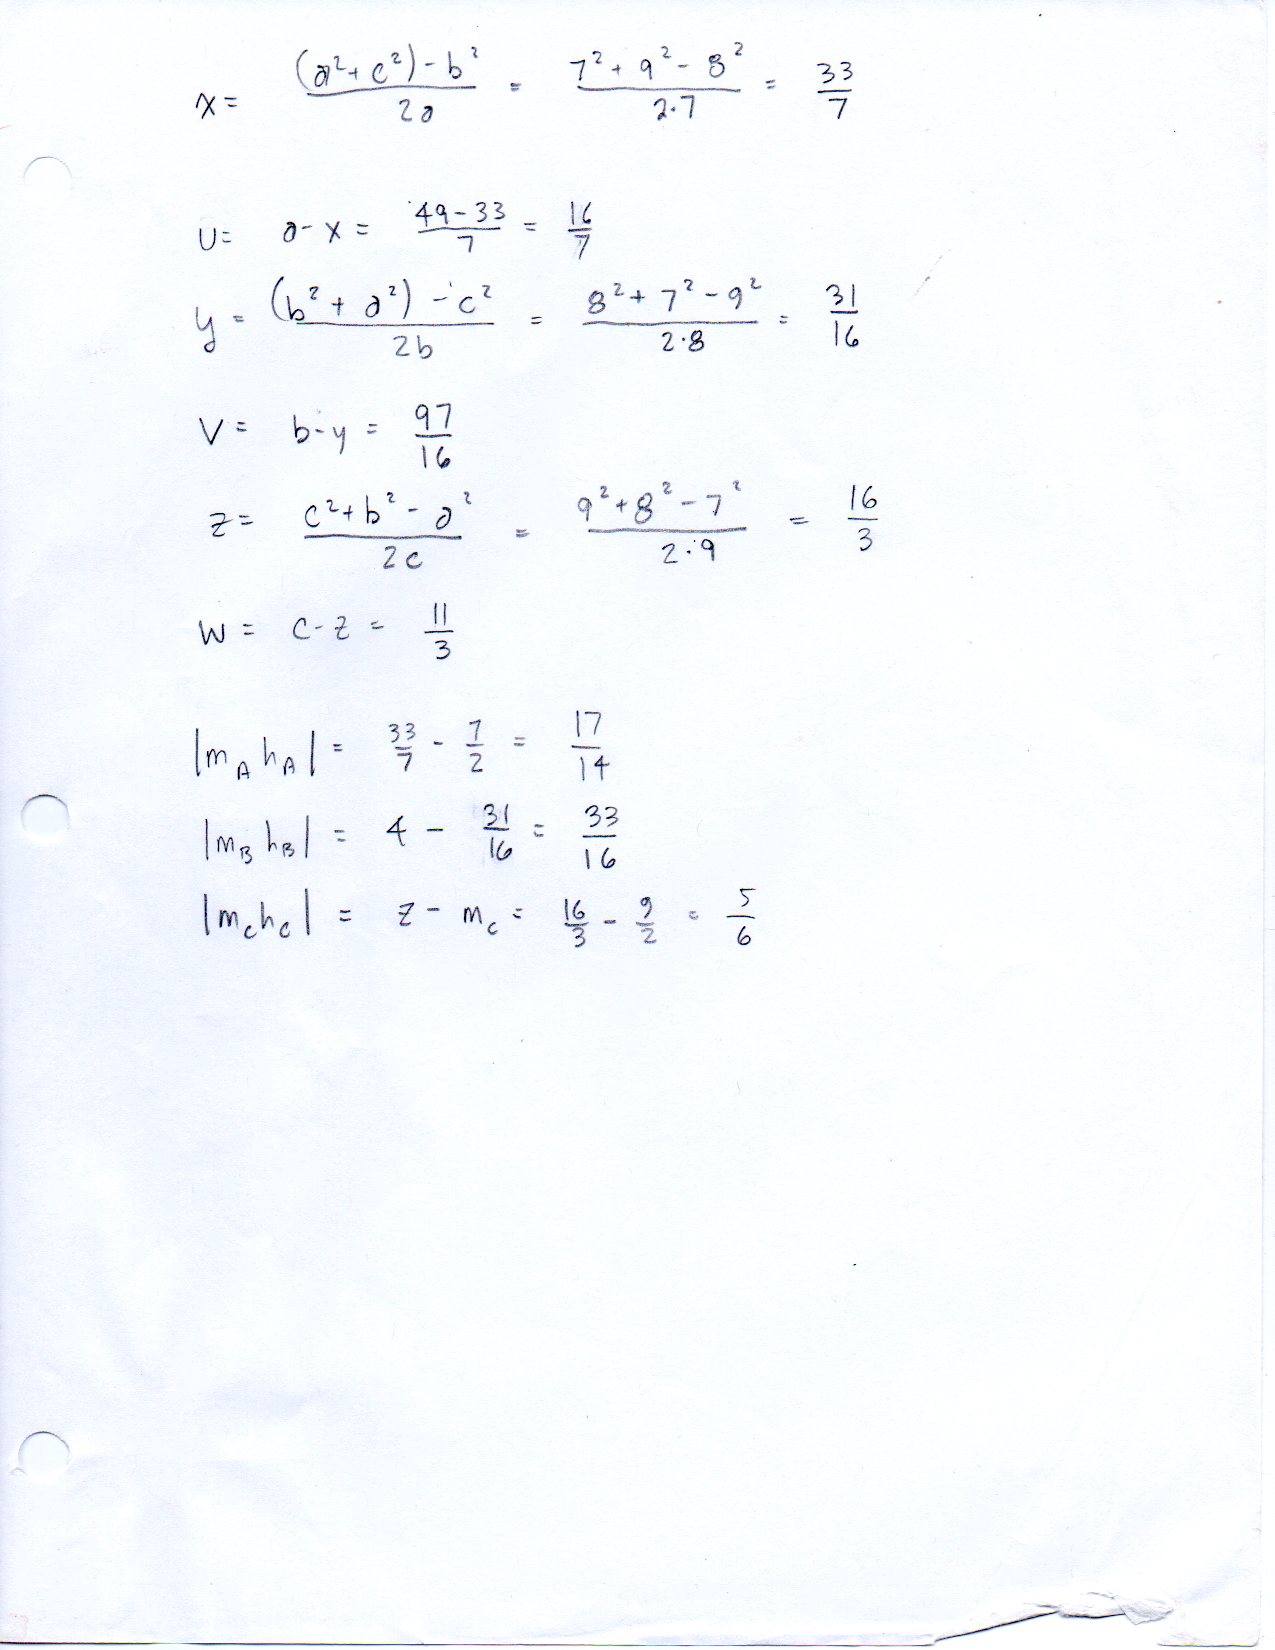 x = ((a² + c²) - b²)/(2a) = (7² + 9² - 8²)/(2·7) = 33/7
U = a - x = (49 - 33)/7 = 16/7
y = ((b² + a²) - c²)/(2b) = (8² + 7² - 9²)/(2·8) = 31/16
V = b - y = 97/16
z = (c² + b² - a²)/(2c) = (9² + 8² - 7²)/(2·9) = 16/3
W = c - z = 11/3
|m_A h_A| = 33/7 - 7/2 = 17/14
|m_B h_B| = 4 - 31/16 = 33/16
|m_c h_c| = z - m_c = 16/3 - 9/2 = 5/6